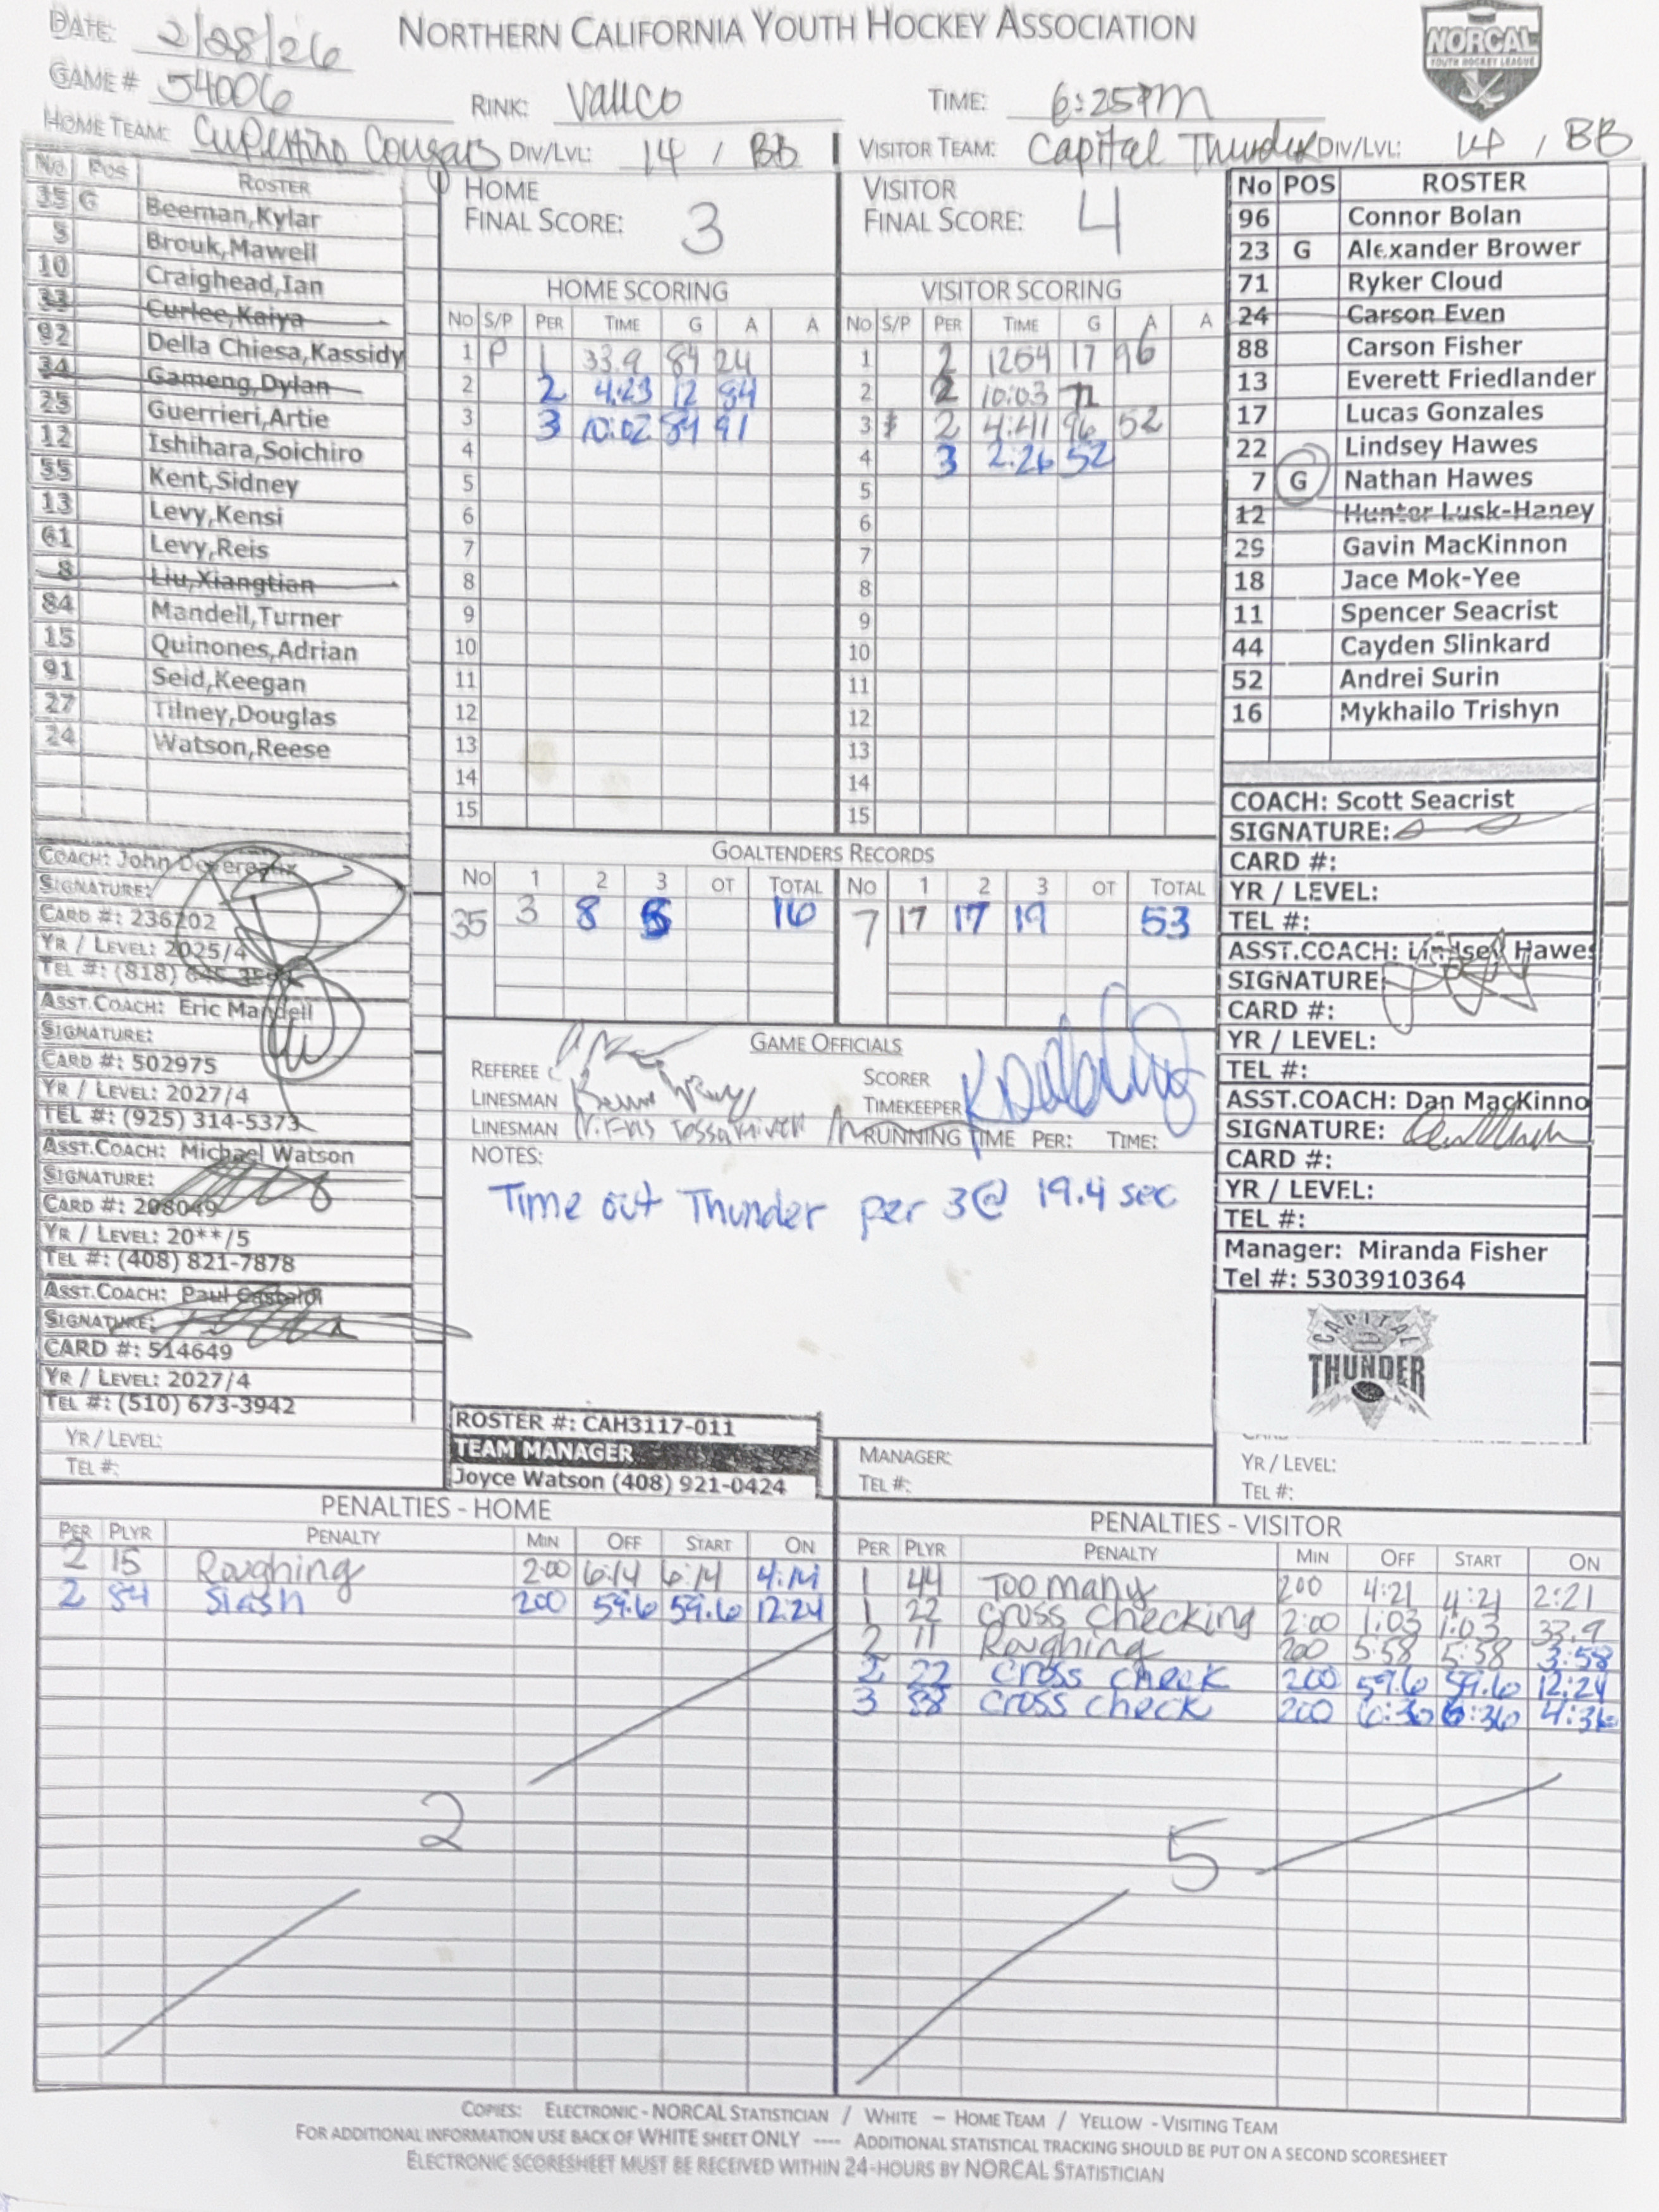 NORTHERN CALIFORNIA YOUTH HOCKEY ASSOCIATION
NORCAL
YOUTH HOCKEY LEAGUE
DATE: 2/28/26
GAME # 54006 RINK: Vallco TIME: 6:25PM
HOME TEAM: Cupertino Cougars DIV/LVL: 14 / BB VISITOR TEAM: Capital Thunder DIV/LVL: 14 / BB
No Pos ROSTER
35 G Beeman,Kylar
5 Brouk,Mawell
10 Craighead,Ian
33 Curlee,Kaiya
92 Della Chiesa,Kassidy
34 Gameng,Dylan
25 Guerrieri,Artie
12 Ishihara,Soichiro
55 Kent,Sidney
13 Levy,Kensi
61 Levy,Reis
8 Liu,Xiangtian
84 Mandell,Turner
15 Quinones,Adrian
91 Seid,Keegan
27 Tilney,Douglas
24 Watson,Reese
COACH: John Devereaux
SIGNATURE:
CARD #: 236202
YR / LEVEL: 2025/4
TEL #: (818)
ASST.COACH: Eric Mandell
SIGNATURE:
CARD #: 502975
YR / LEVEL: 2027/4
TEL #: (925) 314-5373
ASST.COACH: Michael Watson
SIGNATURE:
CARD #: 208049
YR / LEVEL: 20**/5
TEL #: (408) 821-7878
ASST.COACH: Paul Castaldi
SIGNATURE:
CARD #: 514649
YR / LEVEL: 2027/4
TEL #: (510) 673-3942
YR / LEVEL:
TEL #:
HOME
FINAL SCORE: 3
VISITOR
FINAL SCORE: 4
HOME SCORING
No S/P PER TIME G A A
1 P 1 33.9 84 24
2 2 4:23 12 84
3 3 10:02 84 91
4
5
6
7
8
9
10
11
12
13
14
15
VISITOR SCORING
No S/P PER TIME G A A
1 2 1254 17 96
2 2 10:03 71
3 2 4:41 96 52
4 3 2:26 52
5
6
7
8
9
10
11
12
13
14
15
GOALTENDERS RECORDS
No 1 2 3 OT TOTAL No 1 2 3 OT TOTAL
35 3 8 5 16 7 17 17 19 53
GAME OFFICIALS
REFEREE
LINESMAN
LINESMAN
SCORER
TIMEKEEPER
RUNNING TIME PER: TIME:
NOTES:
Time out Thunder per 3@ 19.4 sec
ROSTER #: CAH3117-011
TEAM MANAGER
Joyce Watson (408) 921-0424
MANAGER:
TEL #:
No POS ROSTER
96 Connor Bolan
23 G Alexander Brower
71 Ryker Cloud
24 Carson Even
88 Carson Fisher
13 Everett Friedlander
17 Lucas Gonzales
22 Lindsey Hawes
7 G Nathan Hawes
12 Hunter Lusk-Haney
29 Gavin MacKinnon
18 Jace Mok-Yee
11 Spencer Seacrist
44 Cayden Slinkard
52 Andrei Surin
16 Mykhailo Trishyn
COACH: Scott Seacrist
SIGNATURE:
CARD #:
YR / LEVEL:
TEL #:
ASST.COACH: Lindsey Hawes
SIGNATURE:
CARD #:
YR / LEVEL:
TEL #:
ASST.COACH: Dan MacKinno
SIGNATURE:
CARD #:
YR / LEVEL:
TEL #:
Manager: Miranda Fisher
Tel #: 5303910364
CAPITAL
THUNDER
YR / LEVEL:
TEL #:
PENALTIES - HOME
PER PLYR PENALTY MIN OFF START ON
2 15 Roughing 2:00 6:14 6:14 4:14
2 84 Slash 200 59.6 59.6 12:24
2
PENALTIES - VISITOR
PER PLYR PENALTY MIN OFF START ON
1 44 Too many 200 4:21 4:21 2:21
1 22 Cross checking 2:00 1:03 1:03 33.9
2 11 Roughing 200 5:58 5:58 3:58
2 22 Cross check 200 59.6 59.6 12:24
3 88 Cross check 200 6:36 6:36 4:36
5
COPIES: ELECTRONIC - NORCAL STATISTICIAN / WHITE – HOME TEAM / YELLOW - VISITING TEAM
FOR ADDITIONAL INFORMATION USE BACK OF WHITE SHEET ONLY ---- ADDITIONAL STATISTICAL TRACKING SHOULD BE PUT ON A SECOND SCORESHEET
ELECTRONIC SCORESHEET MUST BE RECEIVED WITHIN 24-HOURS BY NORCAL STATISTICIAN